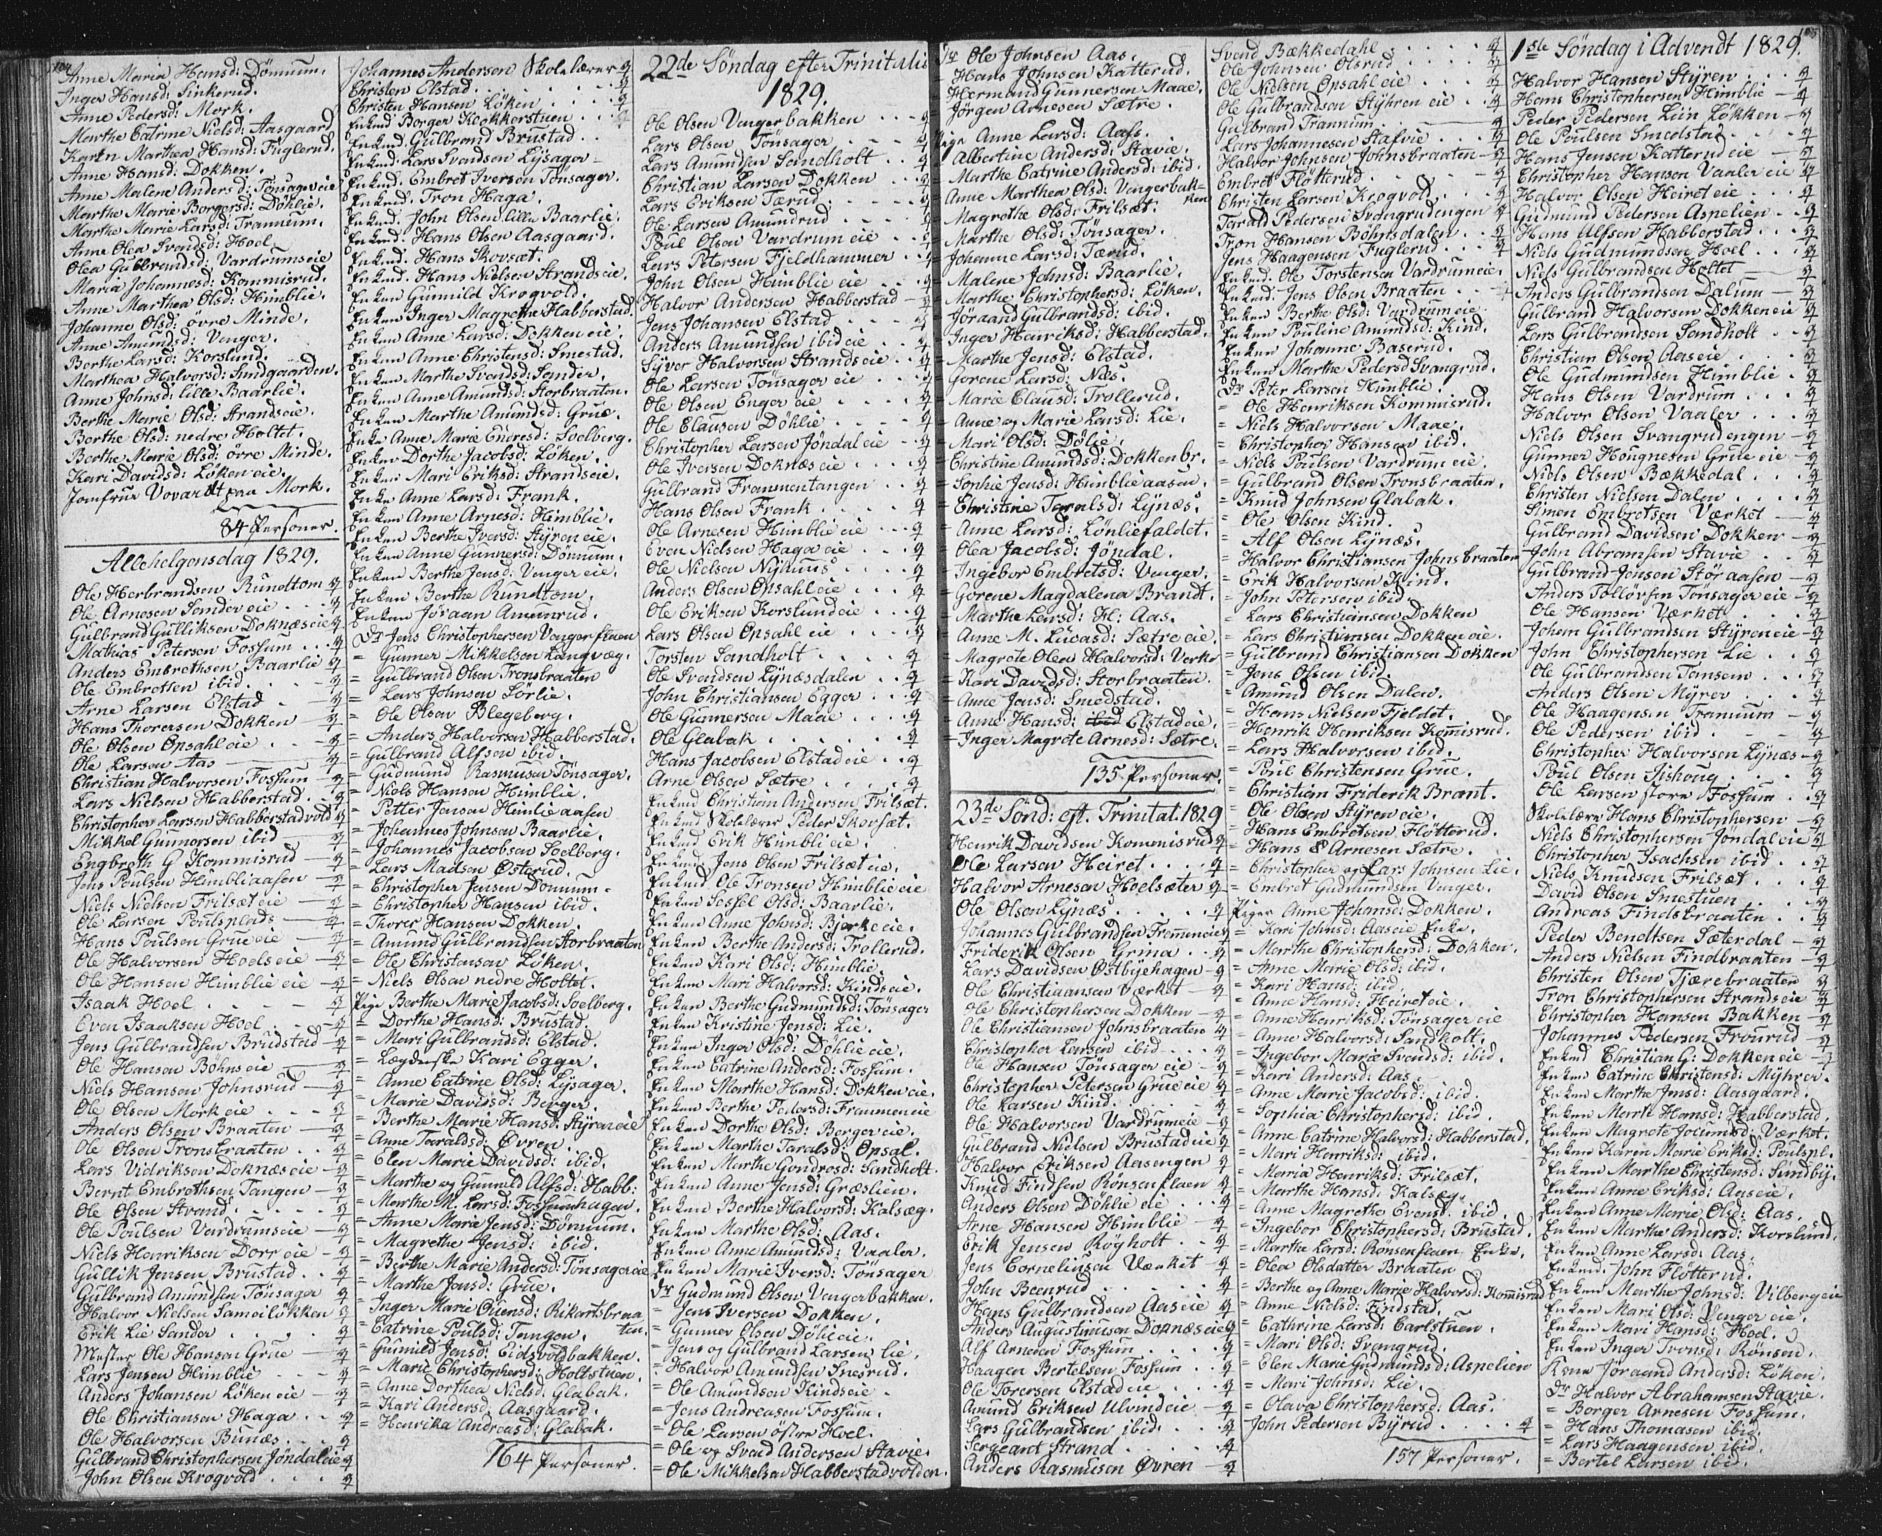 104
Anne Maria Hansd: Dömum.
Inger Hansd: Sinkerud.
Anne Pedersd: Mork.
Marthe Catrine Nielsd: Aasgaard
Karen Marthea Hansd: Fuglerud.
Anne Hansd: Dokken.
Anne Malene Andersd: Tönsager eie
Marthe Marie Borgersd: Döhlie.
Marthe Marie Larsd: Trannum.
Anne Olea Svendsd: Hoel
Olea Gulbrandsd: Vardrumseie
Maria Johannesd: Kommisrud.
Anne Marthea Olsd: Himblie.
Johanne Olsd: övre Minde.
Anne Amundsd: Venger.
Berthe Larsd: Korslund.
Marthea Halvorsd: Sundgaarden.
Anne Johnsd: lille Baarlie.
Berthe Marie Olsd: Strandseie.
Berthe Olsd: nedre Holtet.
Berthe Marie Olsd: övre Minde.
Kari Davidsd: Löken eie.
Jomfrue Vovardt paa Mork.
84 Personer.
Allehelgensdag 1829.
Ole Herbrandsen Rundtom
Ole Arnesen Sönder eie
Gulbrand Gulliksen Doknæs eie
Mathias Petersen Fossum
Anders Embrethsen Baarlie
Ole Embretsen ibid
Arne Larsen Elstad
Hans Thoresen Dokken
Ole Olsen Opsahl eie
Ole Larsen Aas
Christian Halvorsen Fossum
Lars Nielsen Habberstad
Christopher Larsen Habberstadvold
Mikkel Gunnersen ibid
Engbreth G Kommisrud
Jens Poulsen Himbliaasen
Niels Nielsen Frilsæt eie
Ole Larsen Poulsplads
Hans Poulsen Grue eie
Ole Halvorsen Hoels eie
Ole Hansen Himblie eie
Isaak Hoel
Even Isaaksen Hoel
Jens Gulbrandsen Brudstad
Ole Hansen Böhns eie
Niels Hansen Johnsrud
Ole Olsen Mork eie
Anders Olsen Braaten
Ole Olsen Tronsbraaten
Lars Vidriksen Doknæs eie
Bernt Embrethsen Tangen
Ole Olsen Strand
Ole Poulsen Vardrumseie
Niels Henriksen Dorr eie
Gullik Jensen Brustad
Gulbrand Amundsen Tönsager
Halvor Nielsen Sameilökken
Erik Lie Sander
Mester Ole Hansen Grue
Lars Jensen Himblie
Anders Johansen Löken eie
Ole Christiansen Haga
Ole Halvorsen Bunæs
Gulbrand Christophersen Jöndal eie
John Olsen Krogvold
Johannes Andersen Skolelærer
Christen Elstad
Christen Hansen Löken
Enkmd Borger Kokkerstuen
Enkmd. Gulbrand Brustad
Enkmd. Lars Svendsen Lysager
Enkmd. Embret Iversen Tönsager.
Enkmd. Tron Haga.
Enkmd. John Olsen lille Baarlie.
Enkmd. Hans Olsen Aasgaard.
Enkmd. Hans Skovsæt.
Enkmd. Hans Nielsen Strandseie.
Enken Gunnild Krogvold.
Enken Inger Magrethe Habberstad
Enken Anne Larsd: Dokken eie.
Enken Anne Christensd: Smestad.
Enken Marthe Svendsd: Sander.
Enken Anne Amundsd: Storbraaten.
Enken Marthe Amundsd: Grue.
Enke Anne Marie Endresd: Soelberg.
Enken Dorthe Jacobsd: Löken.
Enken Mari Eriksd: Strandseie.
Enke Anne Larsd: Frank.
Enken Anne Arnesd: Himblie.
Enken Berthe Iversd: Styren eie.
Enken Anne Gunnersd: Dömum.
Enken Berthe Jensd: Venger eie.
Enken Berthe Rundtom.
Enken Jöraan Amunrud.
Dr Jens Christophersen Vangerflaen
= Gunner Mikkelsen Langvæg.
= Gulbrand Olsen Tronsbraaten
= Lars Johnsen Sörlie.
= Ole Olsen Blegeberg.
= Anders Halvorsen Habberstad.
= Gulbrand Alfsen ibid.
= Gudmund Rasmusen Tönsager.
= Niels Hansen Himblie.
= Petter Jensen Himlieaasen
= Johannes Johnsen Baarlie.
= Johannes Jacobsen Soelberg.
= Lars Madsen Österud.
= Christopher Jensen Dömum.
= Christopher Hansen ibid.
= Thorer Hansen Dokken.
= Amund Gulbrandsen Storbraaten
= Ole Christensen Löken.
= Niels Olsen nedre Holtet.
Pige Berthe Marie Jacobsd: Soelberg.
= Dorthe Hansd: Brustad.
= Mari Gulbrandsd: Elstad.
= Lægdenske Kari Egger.
= Anne Catrine Olsd: Lysager.
= Marie Davidsd: Berger.
= Berthe Marie Hansd: Styren eie
= Anne Taraldsd: Övren.
= Elen Marie Davidsd: ibid.
= Marthe og Gunnild Alfsd: Habb:
= Marthe M. Larsd: Fossumhagen.
= Anne Marie Jensd: Dömum.
= Magrethe Jensd: ibid.
= Berthe Marie Andersd: Tönsager eie
= Marthe Jensd: Grue.
= Inger Marie Ovensd: Rikartsbraa
ten.
= Catrine Poulsd: Tangen.
= Gunnild Jensd: Eidsvoldbakken.
= Marie Christophersd: Holtstuen.
= Anne Dorthea Nielsd: Glabak.
= Kari Andersd: Aasgaard.
= Henrika Andreasd: Glabak.
164 Personer.
22de Söndag efter Trinitatis
1829.
Ole Olsen Vengerbakken
Lars Olsen Tönsager
Lars Amundsen Sandholt
Christian Larsen Dokken
Lars Eriksen Tærud
Ole Larsen Amundrud
Poul Olsen Vardrum eie
Lars Petersen Fjeldhammer
John Olsen Himblie eie
Halvor Andersen Habberstad
Jens Johansen Elstad
Anders Amundsen ibid eie
Syver Halvorsen Strandseie
Ole Larsen Tönsager eie
Ole Olsen Enger eie
Ole Clausen Döhlie
Christopher Larsen Jöndal eie
Ole Iversen Doknæs eie
Gulbrand Frammentangen
Hans Olsen Frank
Ole Arnesen Himblie eie
Even Nielsen Haga eie
Ole Nielsen Nyhuus
Anders Olsen Opsahl eie
Ole Eriksen Korslund eie
Lars Olsen Opsahl eie
Torsten Sandholt
Ole Svendsen Lynæsdalen
John Christiansen Egger
Ole Gunnersen Maaie
Ole Glabak
Hans Jacobsen Elstad eie
Arne Olsen Sætre
Enkmd Christian Andersen Frilsæt.
Enkmd Skolelærer Peder Skovsæt.
Enkmd Erik Himblie.
Enkmd Jens Olsen Frilsæt ie.
Enkmd Ole Tronsen Himblie eie
Enken Sessel Olsd: Baarlie.
Enken Anne Johnsd: Bjerke eie.
Enken Berthe Andersd: Trollerud.
Enken Kari Olsd: Himblie.
Enken Mari Halvorsd: Kindseie.
Enken Berthe Gudmundsd: Tönsager
Enken Kristine Jensd: Lie.
Enken Inger Olsd: Döhlie eie.
Enken Catrine Andersd: Fossum.
Enken Marthe Hansd: Dokken eie.
Enken Berthe Pedersd: Frammen eie
Enken Dorthe Olsd: Berger eie.
Enken Marthe Taralsd: Opsal.
Enken Marthe Gundrosd: Sandholt.
Enken Anne Jensd: Græslien.
Enken Berthe Halvorsd: Kalsæg.
Enken Marthe Olsd: Aas.
Enken Anne Amundsd: Vaaler.
Enken Marie Iversd: Tönsager
Dr Gudmund Olsen Vengerbakken.
= Jens Iversen Dokken.
= Gunner Olsen Dölieie.
= Jens og Gulbrand Larsen Lie.
= Halvor Amundsen Snesrud.
= Ole Amundsen Kindseie.
= Jens Andreasen Fossum.
= Ole Larsen östre Hoel.
= Ole og Svend Andersen Stavie.
= Ole Mikkelsen Habberstadvolden.
Dr Ole Johnsen Aas.
Hans Johnsen Katterud.
Hermand Gunnersen Maae.
Jörgen Arnesen Sætre.
Pige Anne Larsd: Aass.
Albertine Andersd: Stavie.
= Marthe Catrine Andersd: ibid.
Anne Marthea Olsd: Vengerbak-
ken
= Magrethe Olsd: Frilsæt.
= Marthe Olsd: Tönsager.
= Johanne Larsd: Tærud.
= Malene Johnsd: Baarlie.
= Marthe Christophersd: Löken.
= Jöraand Gulbrandsd: ibid.
= Inger Henriksd: Habberstad.
= Marthe Jensd: Elstad.
= Gorene Larsd: Næs.
= Marie Clausd: Trollerud.
= Anne og Marie Larsd: Lie.
= Mari Olsd: Dölie.
= Christine Amundsd: Dokken br.
= Sophie Jensd: Himblieaasen.
= Christine Taralsd: Lynæs.
= Anne Larsd: Lönliefaldet.
= Olea Jacobsd: Jöndal.
= Ingebor Embretsd: Venger.
= Gorene Magdalena Brandt.
= Marthe Larsd: Kl: Aas.
= Anne M. Lucasd: Sætre eie.
= Magrete Olea Halvorsd: Verke
= Kari Davidsd: Storbraaten.
= Anne Jensd: Smedstad.
= Anne Hansd: Elstad eie.
= Inger Magrete Arnesd: Sætre.
135 Personer.
23de Sönd: eft. Trinitat. 1829
Henrik Davidsen Kommisrud
Ole Larsen Heiret
Halvor Arnesen Hoelsæter
Ole Olsen Lynæs
Johannes Gulbrandsen Fremmeneie
Friderik Olsen Grina
Lars Davidsen Östbyehagen
Ole Christiansen Værket
Ole Christophersen Dokken
Ole Christiansen Johnsbraaten
Christopher Larsen ibid
Ole Hansen Tönsager eie
Christopher Petersen Grue eie
Ole Larsen Kind
Ole Halvorsen Vardrumeie
Gulbrand Nielsen Brustad eie
Halvor Eriksen Aasengen
Knud Findsen Rönsenflaen
Anders Olsen Döhlie eie
Arne Hansen Himblie
Erik Jensen Röyholt
Jens Cornelinsen Værket
John Beenrud
Hans Gulbrandsen Aas eie
Anders Augustinusen Doknæs eie
Alf Arnesen Fossum
Haagen Bertelsen Fossum
Ole Torersen Elstad eie
Amund Eriksen Ulvind eie
Lars Gulbrandsen ibid
Sergeant Strand
Anders Rasmusen Övren
Svend Bækkedahl
Ole Johnsen Olsrud
Ole Nielsen Opsahl eie
Ole Gulbrandsen Styhren eie
Gulbrand Trannum
Lars Johannesen Stafvie
Halvor Johnsen Johnsbraaten
Embret Flötterud
Christen Larsen Krogvold
Tarald Pedersen Svangrudengen
Tron Hansen Böhnsdalen
Jens Haagensen Fuglerud
Enkmd. Ole Torstensen Vardrum eie.
Enkmd. Jens Olsen Braaten
Enken Berthe Olsd: Vardrum eie
Enken Pauline Amundsd: Kind.
Enken Johanne Baserud.
Enken Marthe Pedersd Svangrud.
Dr Peter Larsen Himblie.
= Ole Henriksen Kommisrud.
= Niels Halvorsen Maae.
= Christopher Hansen ibid.
= Niels Poulsen Vardrum eie.
= Gulbrand Olsen Tronsbraaten.
= Knud Johnsen Glabak.
= Ole Olsen Kind.
= Alf Olsen Lynæs.
= Halvor Christiansen Johnsbraaten
= Erik Halvorsen Kind.
= John Petersen ibid.
= Lars Christiansen Dokken
= Lars Christiansen Dokken eie.
= Gulbrand Christiansen Dokken
= Jens Olsen ibid.
= Amund Olsen Dalen.
= Hans Nielsen Fjeldet.
= Henrik Henriksen Komisrud.
= Lars Halvorsen ibid.
= Poul Christensen Grue.
= Christian Friderik Brant.
= Ole Olsen Styren eie.
= Hans Embretsen Flötterud.
= Hans Arnesen Sætre.
= Christopher og Lars Johnsen Lie.
= Embret Gudmundsen Venger.
Piger Anne Johansd: Dokken.
= Kari Johnsd: Aaseie Enke.
= Marthe Christophersd: Dokken.
= Anne Marie Olsd: ibid.
= Kari Hansd: ibid.
= Anne Hansd: Heiret eie.
= Anne Henriksd: Tönsager eie
= Anne Halvorsd: Sandholt.
= Ingebor Marie Svendsd: ibid.
= Kari Andersd: Aas.
= Anne Marie Jacobsd: ibid.
= Sophia Christophersd: ibid.
= Anne Catrine Halvorsd: Habberstad.
= Mari Henriksd: ibid.
= Maria Henriksd: Frilsæt.
= Marthe Hansd: Kalsæg.
= Anne Magrethe Evensd: ibid.
= Ingebor Christophersd: Brustad.
= Marthe Larsd: Ronsenflaen Enke.
= Olea Olsdatter Braaten
= Berthe og Anne Marie Halvorsd: Komisrud
= Anne Nielsd: Findstad.
= Cathrine Larsd: Carlstuen.
= Mari Olsd: Svangrud.
= Elen Marie Gudmundsd: Aspelien
= Mari Johnsd: Lie.
= Olava Christophersd: Aas:
John Pedersen Byrud
157 Personer.
105
1ste Söndag i Advendt 1829.
Halvor Hansen Styren
Hans Christophersen Himblie
Peder Pedersen Liin Løkken
Ole Poulsen Smedstad
Hans Jensen Katterud eie
Christopher Hansen Vaaler eie
Halvor Olsen Heiret eie
Gudmund Pedersen Aspelien
Hans Ulfsen Habberstad
Niels Gudmundsen Hoel
Niels Gulbrandsen Holtet
Anders Gulbrandsen Dalum
Gulbrand Halvorsen Dokken eie
Lars Gulbrandsen Sandholt
Christian Olsen Aas eie
Ole Gudmundsen Himblie
Hans Olsen Vardrum
Halvor Olsen Vaaler
Niels Olsen Svangrudengen
Gunner Hougnesen Grue eie
Niels Olsen Bækkedal
Christen Nielsen Dalen
Simen Embretsen Værket
Gulbrand Davidsen Dokken
John Abramsen Stavie
Gulbrand Jensen Störaasen
Anders Tollovsen Tönsager eie
Ole Hansen Værket
Johan Gulbrandsen Styren eie
John Christophersen Lie
Ole Gulbrandsen Tamsem
Anders Olsen Myrer
Ole Haagensen Tramuum
Ole Pedersen ibid
Christopher Halvorsen Lynæs
Poul Olsen Sishoug
Ole Larsen store Fossum
Skolelærer Hans Christophersen
Niels Christophersen Jöndal eie
Christopher Isachsen ibid
Niels Knudsen Frilsæt
David Olsen Smestuen
Andreas Findsbraaten
Peder Bendtsen Sæterdal
Anders Nielsen Findbraaten
Christen Olsen Tjærebraaten
Tron Christophersen Strandseie
Christopher Hansen Bakken
Johannes Pedersen Frourud
Enkmd Christian G: Dokken eie
Enken Catrine Christensd: Myhrer.
Enken Marthe Jensd: Aasgaard.
Enken Marie Hansd: Habberstad.
Enken Magrete Jocumsd: Værket.
Enken Karen Marie Eriksd: Poulspl.
Enken Marthe Christensd: Sundby.
Enken Anne Eriksd: Aas eie.
Enken Anne Marie Olsd: Aas.
Enken Marthe Andersd: Korslund.
Enken Anne Larsd: Aas.
Enkmd: John Flötterud.
Enken Marthe Johnsd: Vilberg eie
Enken Mari Olsd: Venger eie.
Enken Mari Hansd: Hoel.
Enken Inger Tronsd: Rönsen.
Kone Jöraand Andersd: Löken.
Dr Halvor Abrahamsen Stavie.
= Borger Arnesen Fossum.
= Hans Thomasen ibid
= Lars Haagensen ibid.
= Bertel Larsen ibid.